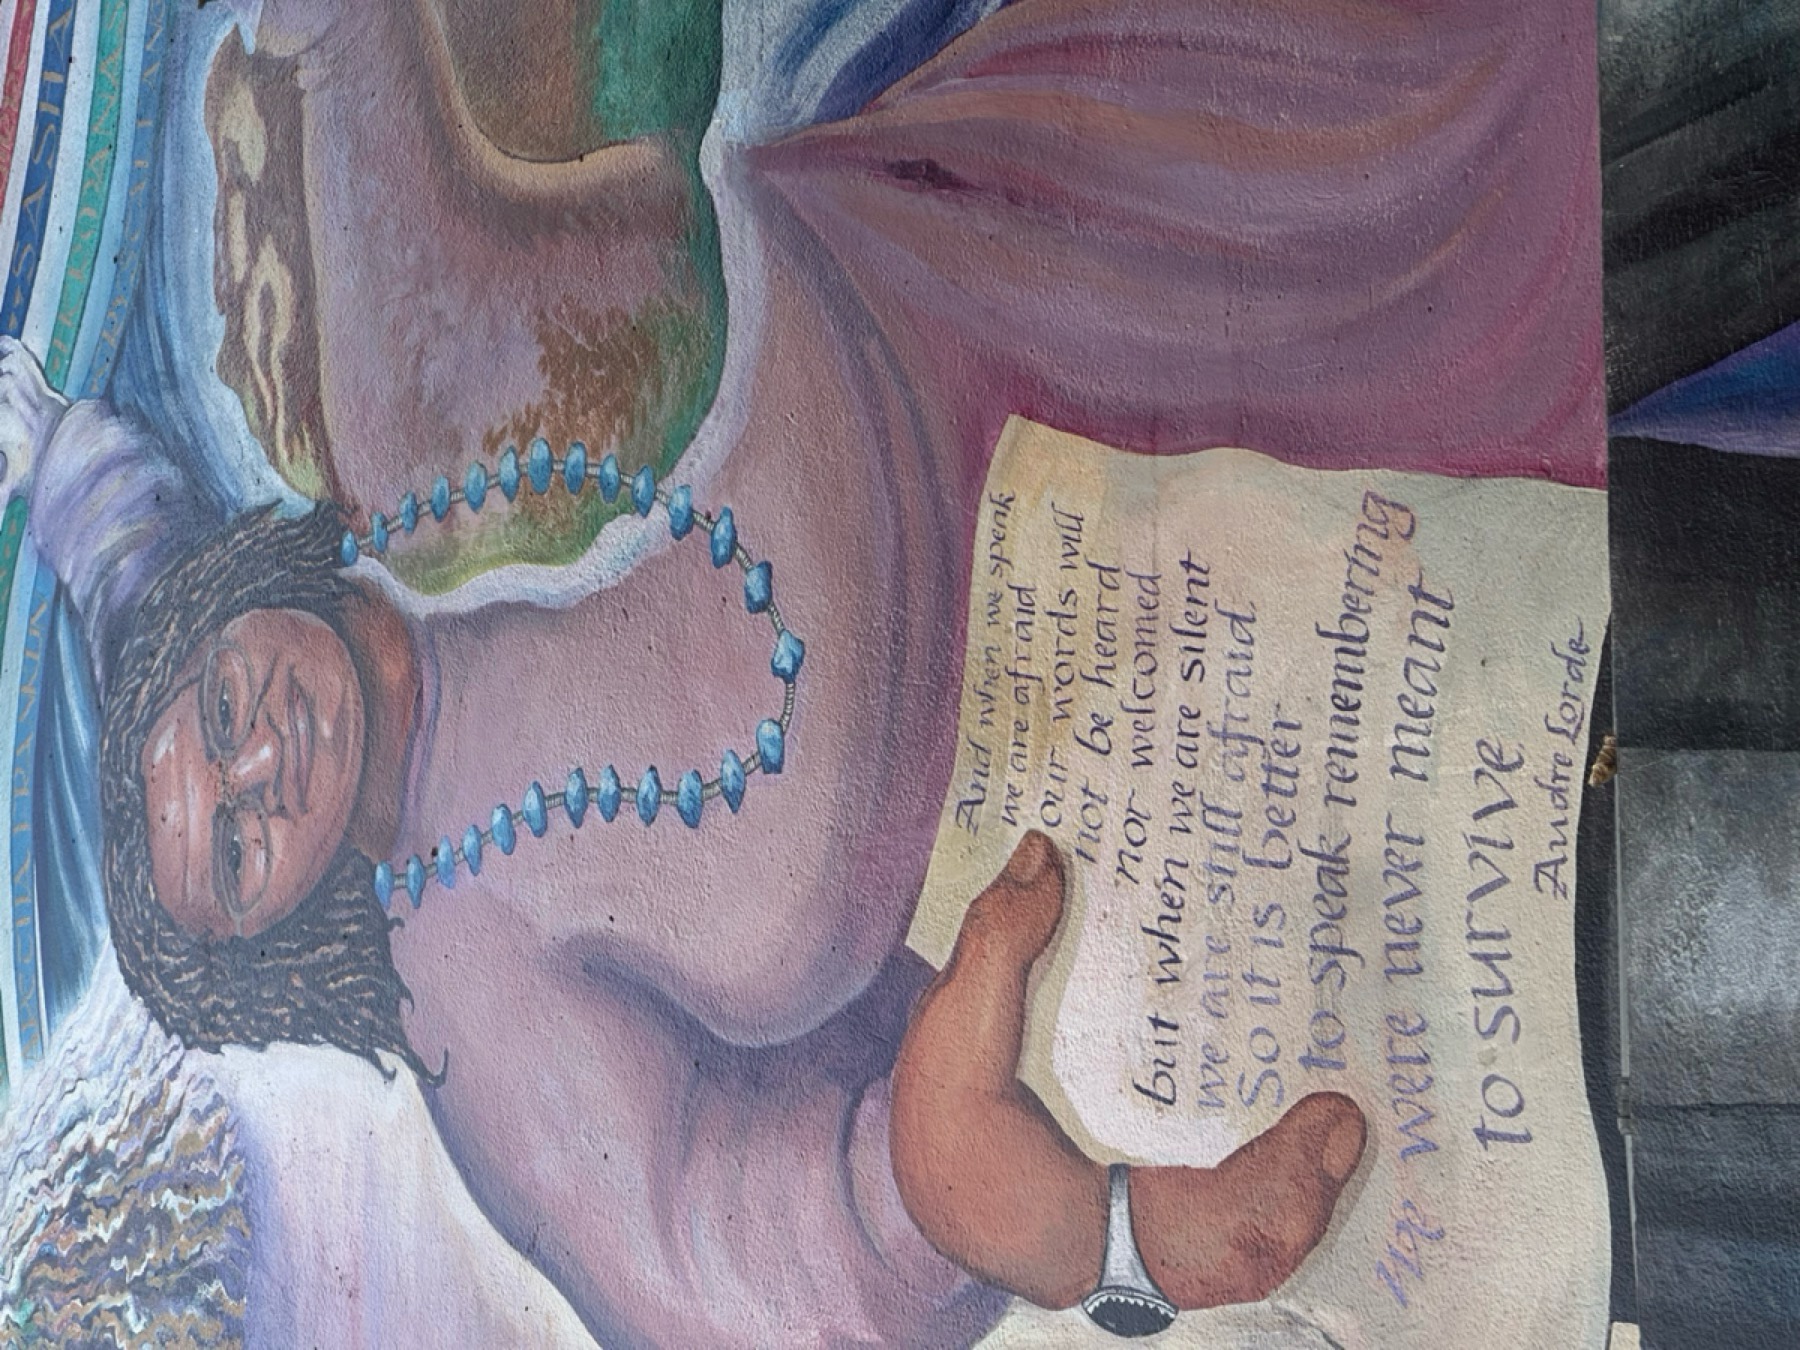 And when we speak
we are afraid
our words will
not be heard
nor welcomed
but when we are silent
we are still afraid.
So it is better
to speak remembering
we were never meant
to survive
Audre Lorde
SASHA